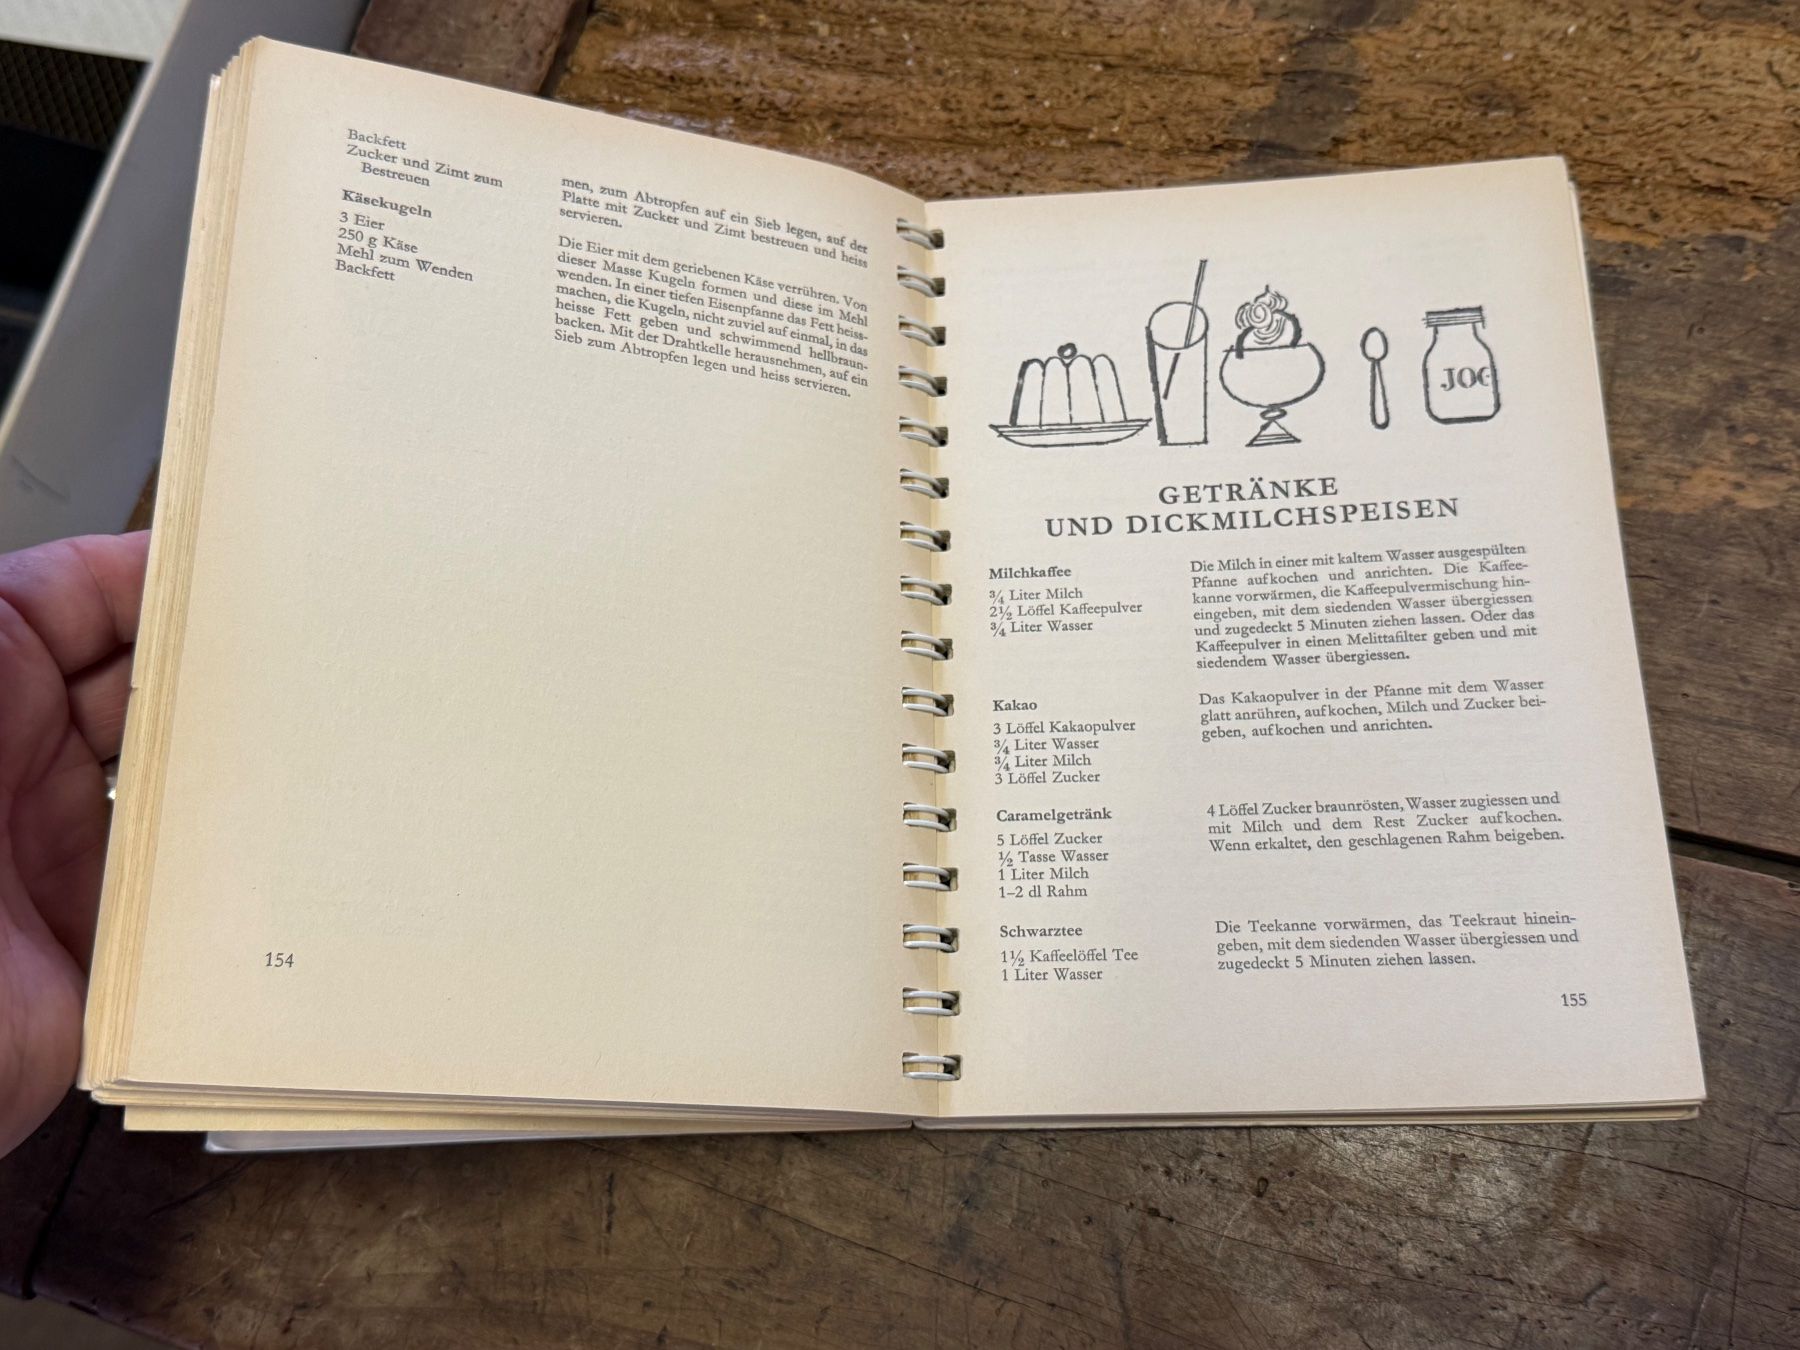 Backfett
Zucker und Zimt zum
Bestreuen
men, zum Abtropfen auf ein Sieb legen, auf der
Platte mit Zucker und Zimt bestreuen und heiss
servieren.
Käsekugeln
3 Eier
250 g Käse
Mehl zum Wenden
Backfett
Die Eier mit dem geriebenen Käse verrühren. Von
dieser Masse Kugeln formen und diese im Mehl
wenden. In einer tiefen Eisenpfanne das Fett heiss-
machen, die Kugeln, nicht zuviel auf einmal, in das
heisse Fett geben und schwimmend hellbraun-
backen. Mit der Drahtkelle herausnehmen, auf ein
Sieb zum Abtropfen legen und heiss servieren.
154
JOG
GETRÄNKE
UND DICKMILCHSPEISEN
Milchkaffee
¾ Liter Milch
2½ Löffel Kaffeepulver
¾ Liter Wasser
Die Milch in einer mit kaltem Wasser ausgespülten
Pfanne aufkochen und anrichten. Die Kaffee-
kanne vorwärmen, die Kaffeepulvermischung hin-
eingeben, mit dem siedenden Wasser übergiessen
und zugedeckt 5 Minuten ziehen lassen. Oder das
Kaffeepulver in einen Melittafilter geben und mit
siedendem Wasser übergiessen.
Kakao
3 Löffel Kakaopulver
¾ Liter Wasser
¾ Liter Milch
3 Löffel Zucker
Das Kakaopulver in der Pfanne mit dem Wasser
glatt anrühren, aufkochen, Milch und Zucker bei-
geben, aufkochen und anrichten.
Caramelgetränk
5 Löffel Zucker
½ Tasse Wasser
1 Liter Milch
1–2 dl Rahm
4 Löffel Zucker braunrösten, Wasser zugiessen und
mit Milch und dem Rest Zucker aufkochen.
Wenn erkaltet, den geschlagenen Rahm beigeben.
Schwarztee
1½ Kaffeelöffel Tee
1 Liter Wasser
Die Teekanne vorwärmen, das Teekraut hinein-
geben, mit dem siedenden Wasser übergiessen und
zugedeckt 5 Minuten ziehen lassen.
155